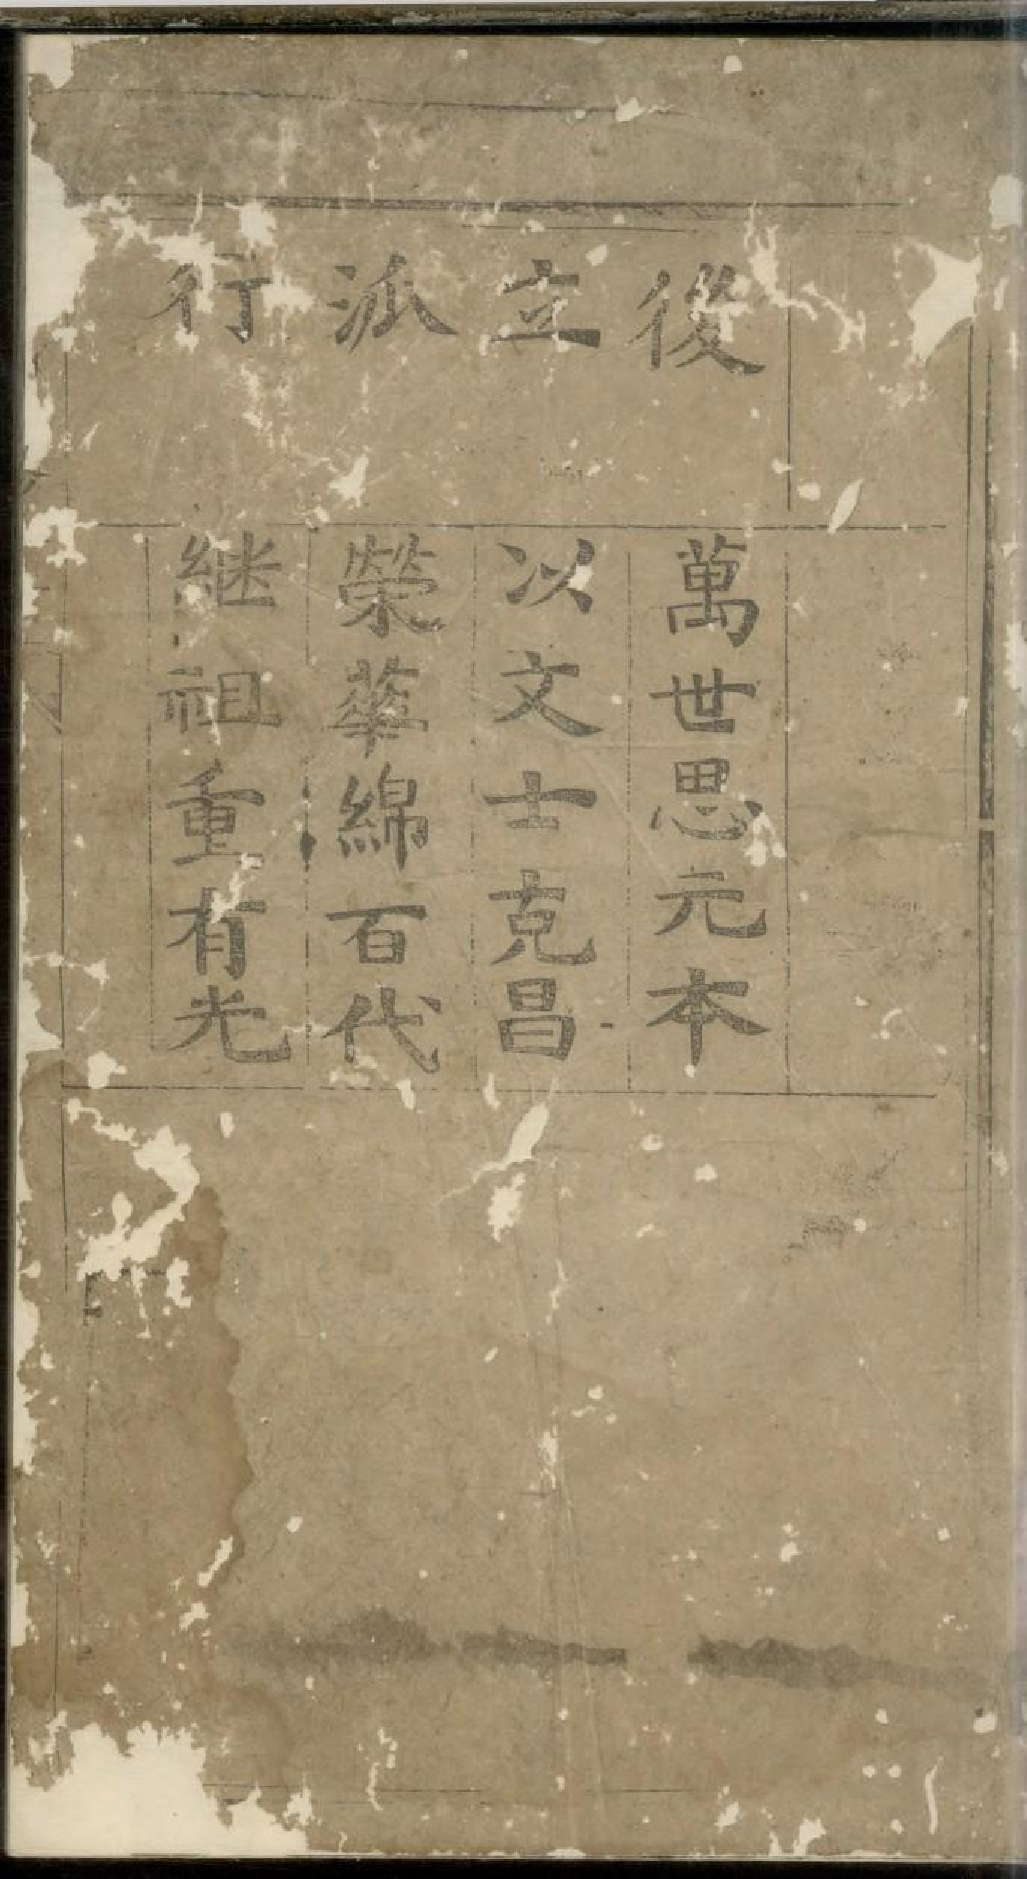 後立派行
萬世思元本
以文士克昌
榮華綿百代
継祖重有光